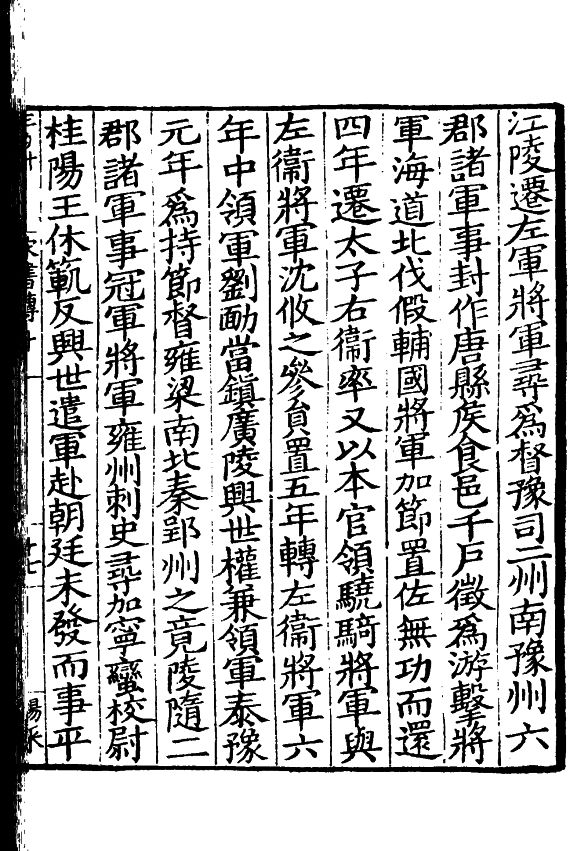 江陵遷左軍將軍尋爲督豫司二州南豫州六
郡諸軍事封作唐縣侯食邑千戶徵爲游擊將
軍海道北伐假輔國將軍加節置佐無功而還
四年遷太子右衞率又以本官領驍騎將軍與
左衞將軍沈攸之參員置五年轉左衞將軍六
年中領軍劉勔當鎮廣陵興世權兼領軍泰豫
元年爲持節督雍梁南北秦郢州之竟陵隨二
郡諸軍事冠軍將軍雍州刺史尋加寧蠻校尉
桂陽王休範反興世遣軍赴朝廷未發而事平
十七